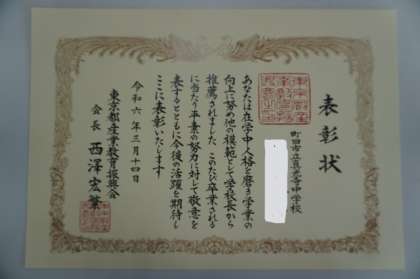 表彰状
町田市立真光寺中学校
あなたは在学中人格を磨き学業の
向上に努め他の模範として学校長から
推薦されました このたび卒業される
に当たり平素の努力に対して敬意を
表するとともに今後の活躍を期待し
ここに表彰いたします
令和六年三月十四日
東京都産業教育振興会
会長 西澤宏繁